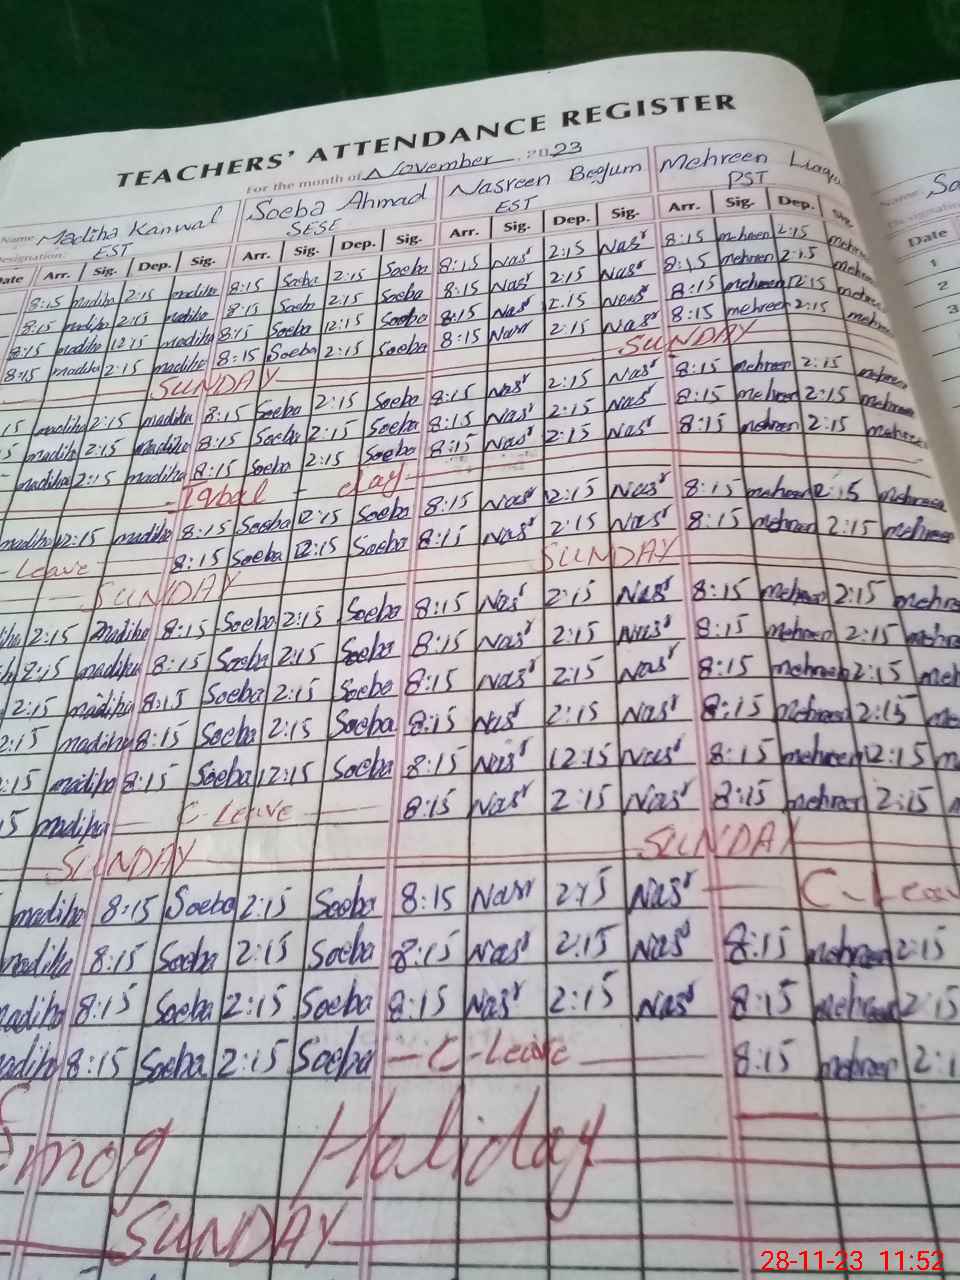 TEACHERS' ATTENDANCE REGISTER
For the month of November 2023
Name Madiha Kanwal Soeba Ahmad Nasreen Begum Mehreen
Designation: EST SESE EST PST
Date Arr. Sig. Dep. Sig. Arr. Sig. Dep. Sig. Arr. Sig. Dep. Sig. Arr. Sig. Dep. Sig.
8:15 madiha 2:15 madiha 8:15 Soeba 2:15 Soeba 8:15 Nas 2:15 Nas 8:15 mehreen 2:15 mehreen
8:15 madiha 2:15 madiha 8:15 Soeba 2:15 Soeba 8:15 Nas 2:15 Nas 8:15 mehreen 2:15 mehreen
8:15 madiha 12:15 madiha 8:15 Soeba 12:15 Soeba 8:15 Nas 12:15 Nas 8:15 mehreen 12:15 mehreen
8:15 madiha 2:15 madiha 8:15 Soeba 2:15 Soeba 8:15 Nasr 2:15 Nas 8:15 mehreen 2:15 mehreen
SUNDAY SUNDAY
15 madiha 2:15 madiha 8:15 Soeba 2:15 Soeba 8:15 Nas 2:15 Nas 8:15 mehreen 2:15 mehreen
5 madiha 2:15 madiha 8:15 Soeba 2:15 Soeba 8:15 Nas 2:15 Nas 8:15 mehreen 2:15 mehreen
madiha 2:15 madiha 8:15 Soeba 2:15 Soeba 8:15 Nas 2:15 Nas 8:15 mehreen 2:15 mehreen
Iqbal - day
madiha 12:15 madiha 8:15 Soeba 12:15 Soeba 8:15 Nas 12:15 Nas 8:15 mehreen 12:15 mehreen
- Leave 8:15 Soeba 12:15 Soeba 8:15 Nas 2:15 Nas 8:15 mehreen 2:15 mehreen
SUNDAY SUNDAY
iha 2:15 madiha 8:15 Soeba 2:15 Soeba 8:15 Nas 2:15 Nas 8:15 mehreen 2:15 mehre
2:15 madiha 8:15 Soeba 2:15 Soeba 8:15 Nas 2:15 Nas 8:15 mehreen 2:15 mehre
2:15 madiha 8:15 Soeba 2:15 Soeba 8:15 Nas 2:15 Nas 8:15 mehreen 2:15 meh
2:15 madiha 8:15 Soeba 2:15 Soeba 8:15 Nas 2:15 Nas 8:15 mehreen 2:15 me
:15 madiha 8:15 Soeba 12:15 Soeba 8:15 Nas 12:15 Nas 8:15 mehreen 12:15 m
5 madiha C-Leave 8:15 Nas 2:15 Nas 8:15 mehreen 2:15
SUNDAY SUNDAY
madiha 8:15 Soeba 2:15 Soeba 8:15 Nasr 2:15 Nas C-Leav
madiha 8:15 Soeba 2:15 Soeba 8:15 Nas 2:15 Nas 8:15 mehreen 2:15
madiha 8:15 Soeba 2:15 Soeba 8:15 Nas 2:15 Nas 8:15 mehreen 2:15
madiha 8:15 Soeba 2:15 Soeba - C-Leave 8:15 mehreen 2:1
Smog Holiday
SUNDAY
Name: So
Designation:
Date
1
2
3
28-11-23 11:52